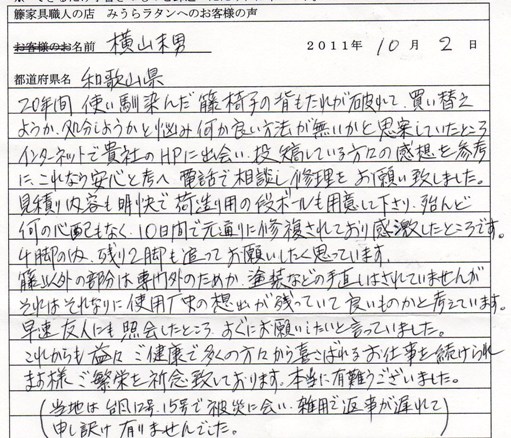 籐家具職人の店 みうらラタンへのお客様の声
お客様のお名前 横山末男 2011年10月2日
都道府県名 和歌山県
20年間 使い馴染んだ籐椅子の背もたれが破れて、買い替え
ようか、処分しようかと悩み何か良い方法が無いかと思案していたところ
インターネットで貴社のHPに出会い、投稿している方々の感想を参考
に、これなら安心と考へ 電話で相談し修理をお願い致しました。
見積り内容も明快で荷造り用の段ボールも用意して下さり、殆んど
何の心配もなく、10日間で元通りに修複されており感激したところです。
4脚の内、残り2脚も追ってお願いしたく思っています。
籐以外の部分は専門外のためか、塗装などの手直しはされていませんが
それはそれなりに使用厂史の想出が残っていて良いものかと考えています。
早速友人にも照会したところ、すぐにお願いしたいと言っていました。
これからも益々ご健康で多くの方々から喜こばれるお仕事を続けられ
ます様ご繁栄を祈念致しております。本当に有難うございました。
(当地は台風12号、15号で被災に会い、雑用で返事が遅れて
申し訳け有りませんでした。)